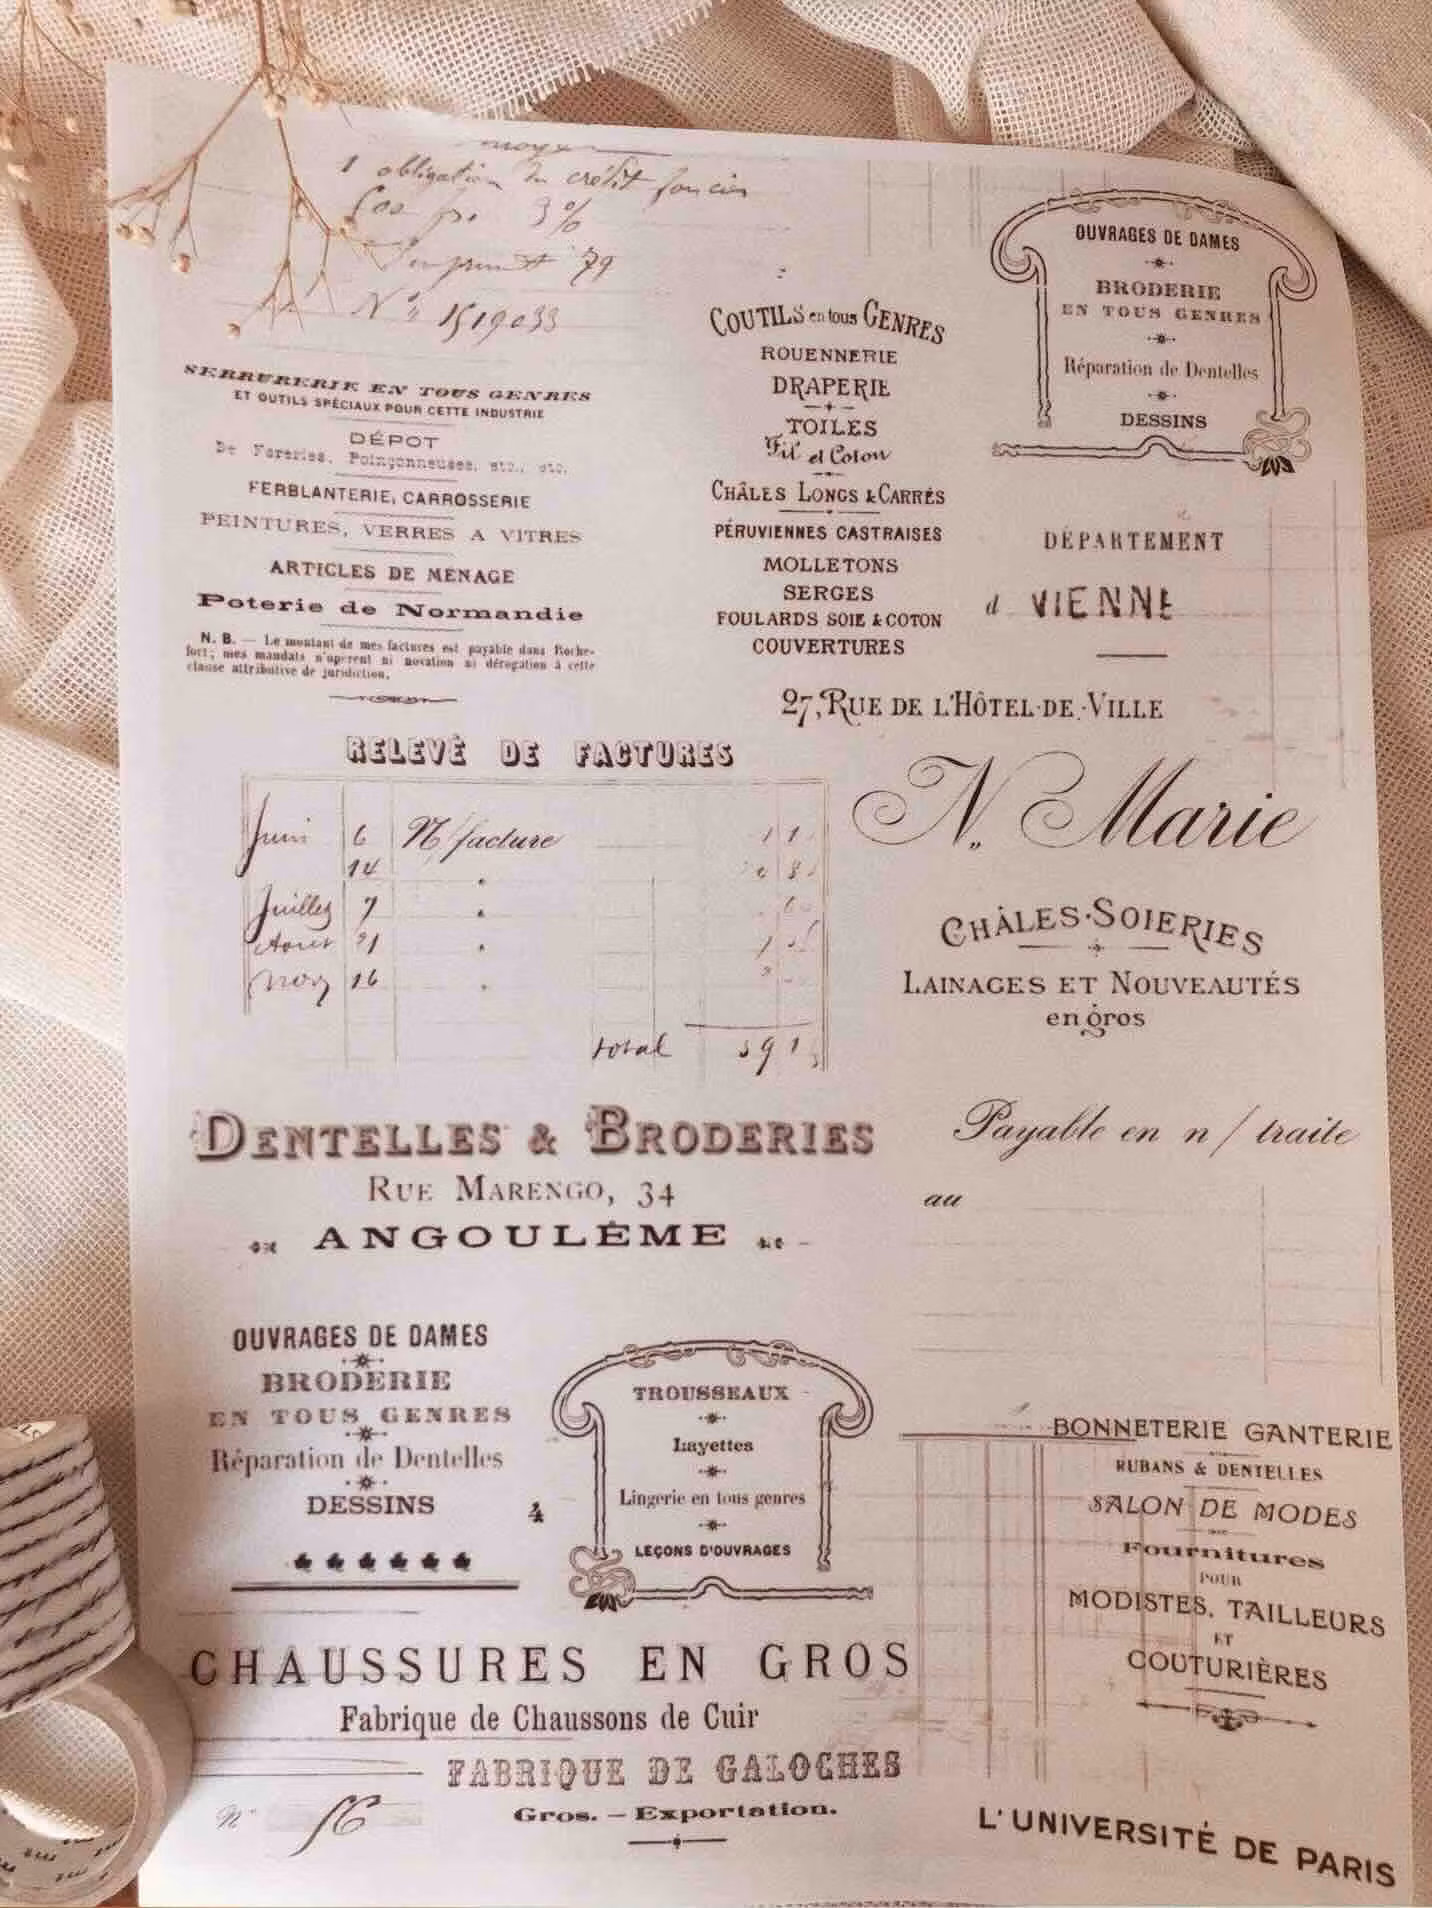 1 obligation du crédit foncier
3%
79
No 1519033
SERRURERIE EN TOUS GENRES
ET OUTILS SPÉCIAUX POUR CETTE INDUSTRIE
DÉPOT
De Foreries, Poinçonneuses, etc., etc.
FERBLANTERIE, CARROSSERIE
PEINTURES, VERRES A VITRES
ARTICLES DE MENAGE
Poterie de Normandie
N. B. — Le montant de mes factures est payable dans Roche-
fort; mes mandats n'operent ni novation ni dérogation à cette
clause attributive de juridiction.
COUTILS en tous GENRES
ROUENNERIE
DRAPERIE
TOILES
Fil et Coton
CHÂLES LONGS & CARRÉS
PÉRUVIENNES CASTRAISES
MOLLETONS
SERGES
FOULARDS SOIE & COTON
COUVERTURES
OUVRAGES DE DAMES
BRODERIE
EN TOUS GENRES
Réparation de Dentelles
DESSINS
DÉPARTEMENT
d VIENNE
27, RUE DE L'HÔTEL-DE-VILLE
RELEVÉ DE FACTURES
Juin 6 N/facture
14
Juillet 7
Aout 21
Nov 16
total
N. Marie
CHÂLES·SOIERIES
LAINAGES ET NOUVEAUTÉS
en gros
DENTELLES & BRODERIES
RUE MARENGO, 34
ANGOULÊME
Payable en n/ traite
au
OUVRAGES DE DAMES
BRODERIE
EN TOUS GENRES
Réparation de Dentelles
DESSINS
4
TROUSSEAUX
Layettes
Lingerie en tous genres
LEÇONS D'OUVRAGES
BONNETERIE GANTERIE
RUBANS & DENTELLES
SALON DE MODES
Fournitures
POUR
MODISTES, TAILLEURS
ET
COUTURIÈRES
CHAUSSURES EN GROS
Fabrique de Chaussons de Cuir
FABRIQUE DE GALOCHES
Gros. — Exportation.
N° 56
L'UNIVERSITÉ DE PARIS